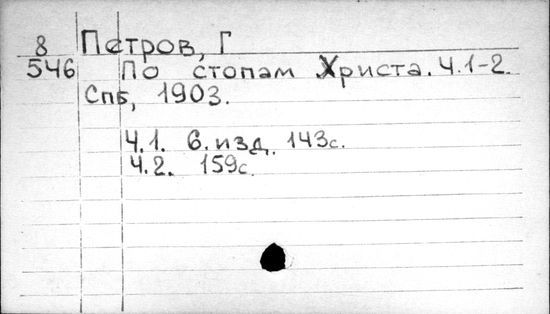 8 Петров, Г
546 По стопам Христа. Ч.1-2.
Спб, 1903.
Ч.1. 6. изд. 143с.
Ч.2. 159с.